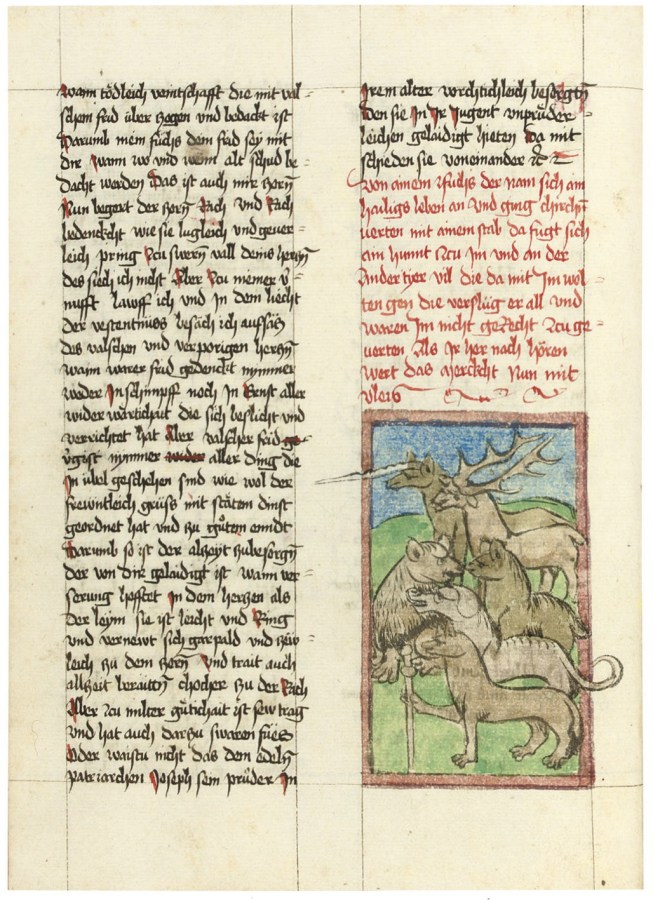 wann tödleich veintschafft die mit val
schem frid über zogen und bedackt ist
Darumb mein füchs dem frid sey mit
dir wann wo vnd wenn alt schud be
dacht werden Das ist auch mir zorn
Nun begert der zorn Rach und Rach
bedenckcht wie sie lugleich und gever
leich pring
des sich ich nicht Aber zu meiner v
nufft lawff ich und in dem liecht
der verstentnuss besäch ich aufsäcz
des valschen und verporigen herczn
wann warer frid gedenckt nymmer
weder In schimpff noch In Ernst aller
wider wärtichait die sich beslicht und
verrichtet hat Aber valscher frid ge
nymmer wider aller ding die
In übel geschehen sind wie wol der
frewntleich grüss mit stäten dinst
geordnet hat und zu gütem enndt
Darumb so ist der alczeyt zubesorgn
der von dir gelaidigt ist wann ver
serung hafftet In dem herczen als
der leym sie ist leicht und Ring
und vernewt sich gar pald und
leich zu dem zorn Und trait auch
allzeit berauttn chocher zu der Rach
Aber zu milter gütichait ist sew trag
und hat auch darzu swaren fües
Oder waistu nicht das dem edeln
patriarchen Joseph sein prüder In
Irem alter vorchtichleich besorgtn
den sie In Ir Jugent vnprüder
leichen gelaidigt hieten Da mit
schieden sie voneinander etc
Von ainem Fuchs der nam sich am
hailigs leben an Und ging chirch
uerten mit ainem stab da fügt sich
ain hunnt zu im und an der
Ander tyer vil die da mit Im wol
ten gen die verslüg er all und
waren Im nicht gerecht zu ge
uerten Als Ir her nach hören
wert das merckcht Nun mit
vleis